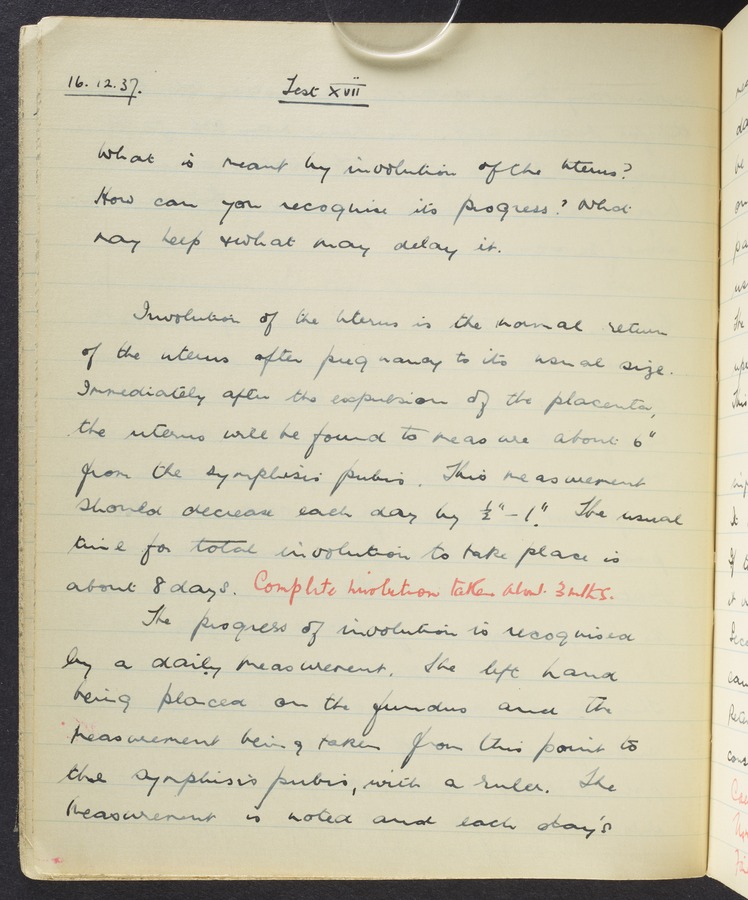 16.12.37. Test XVII
What is meant by involution of the Uterus?
How can you recognise its progress? What
may help & what may delay it.
Involution of the Uterus is the normal return
of the uterus after pregnancy to its usual size.
Immediately after the expulsion of the placenta,
the uterus will be found to measure about 6"
from the symphisis pubis. This measurement
should decrease each day by ½" - 1". The usual
time for total involution to take place is
about 8 days. Complete involution takes about 3 mths.
The progress of involution is recognised
by a daily measurement. The left hand
being placed on the fundus and the
measurement being taken from this point to
the symphisis pubis, with a ruler. The
measurement is noted and each day's